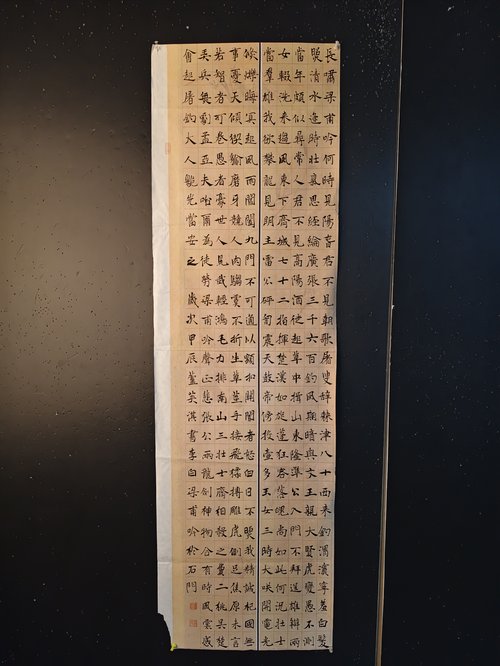 長嘯梁甫吟何時見陽春君不見朝歌屠叟辞棘津八十西来釣渭濱寧羞白髪
照清水逢時壮氣思經綸廣張三千六百釣風期暗與文王親大賢虎變愚不測
當年頗似尋常人君不見高陽酒徒起草中揖山東隆準公入門不拜逞雄辯兩
女輟洗来趨風東下齊城七十二指揮楚漢如旋蓬狂客落魄尚如此何況壮士
當羣雄我欲攀龍見明主雷公砰訇震天鼓帝傍投壺多玉女三時大咲開電光
倏爍晦冥起風雨閶闔九門不可通以額扣關閽者怒白日不照我精誠杞國無
事憂天傾猰貐磨牙競人肉騶虞不折生草莖手接飛猱搏雕虎側足焦原未言
苦智者可卷愚者豪世人見我輕鴻毛力排南山三壮士齊相殺之費二桃吳楚
弄兵無劇孟亞夫咍爾為徒勞梁甫吟聲正悲張公兩龍劍神物合有時風雲感
會起屠釣大人當安之 歲次甲辰藍英淇書李白梁甫吟於石門